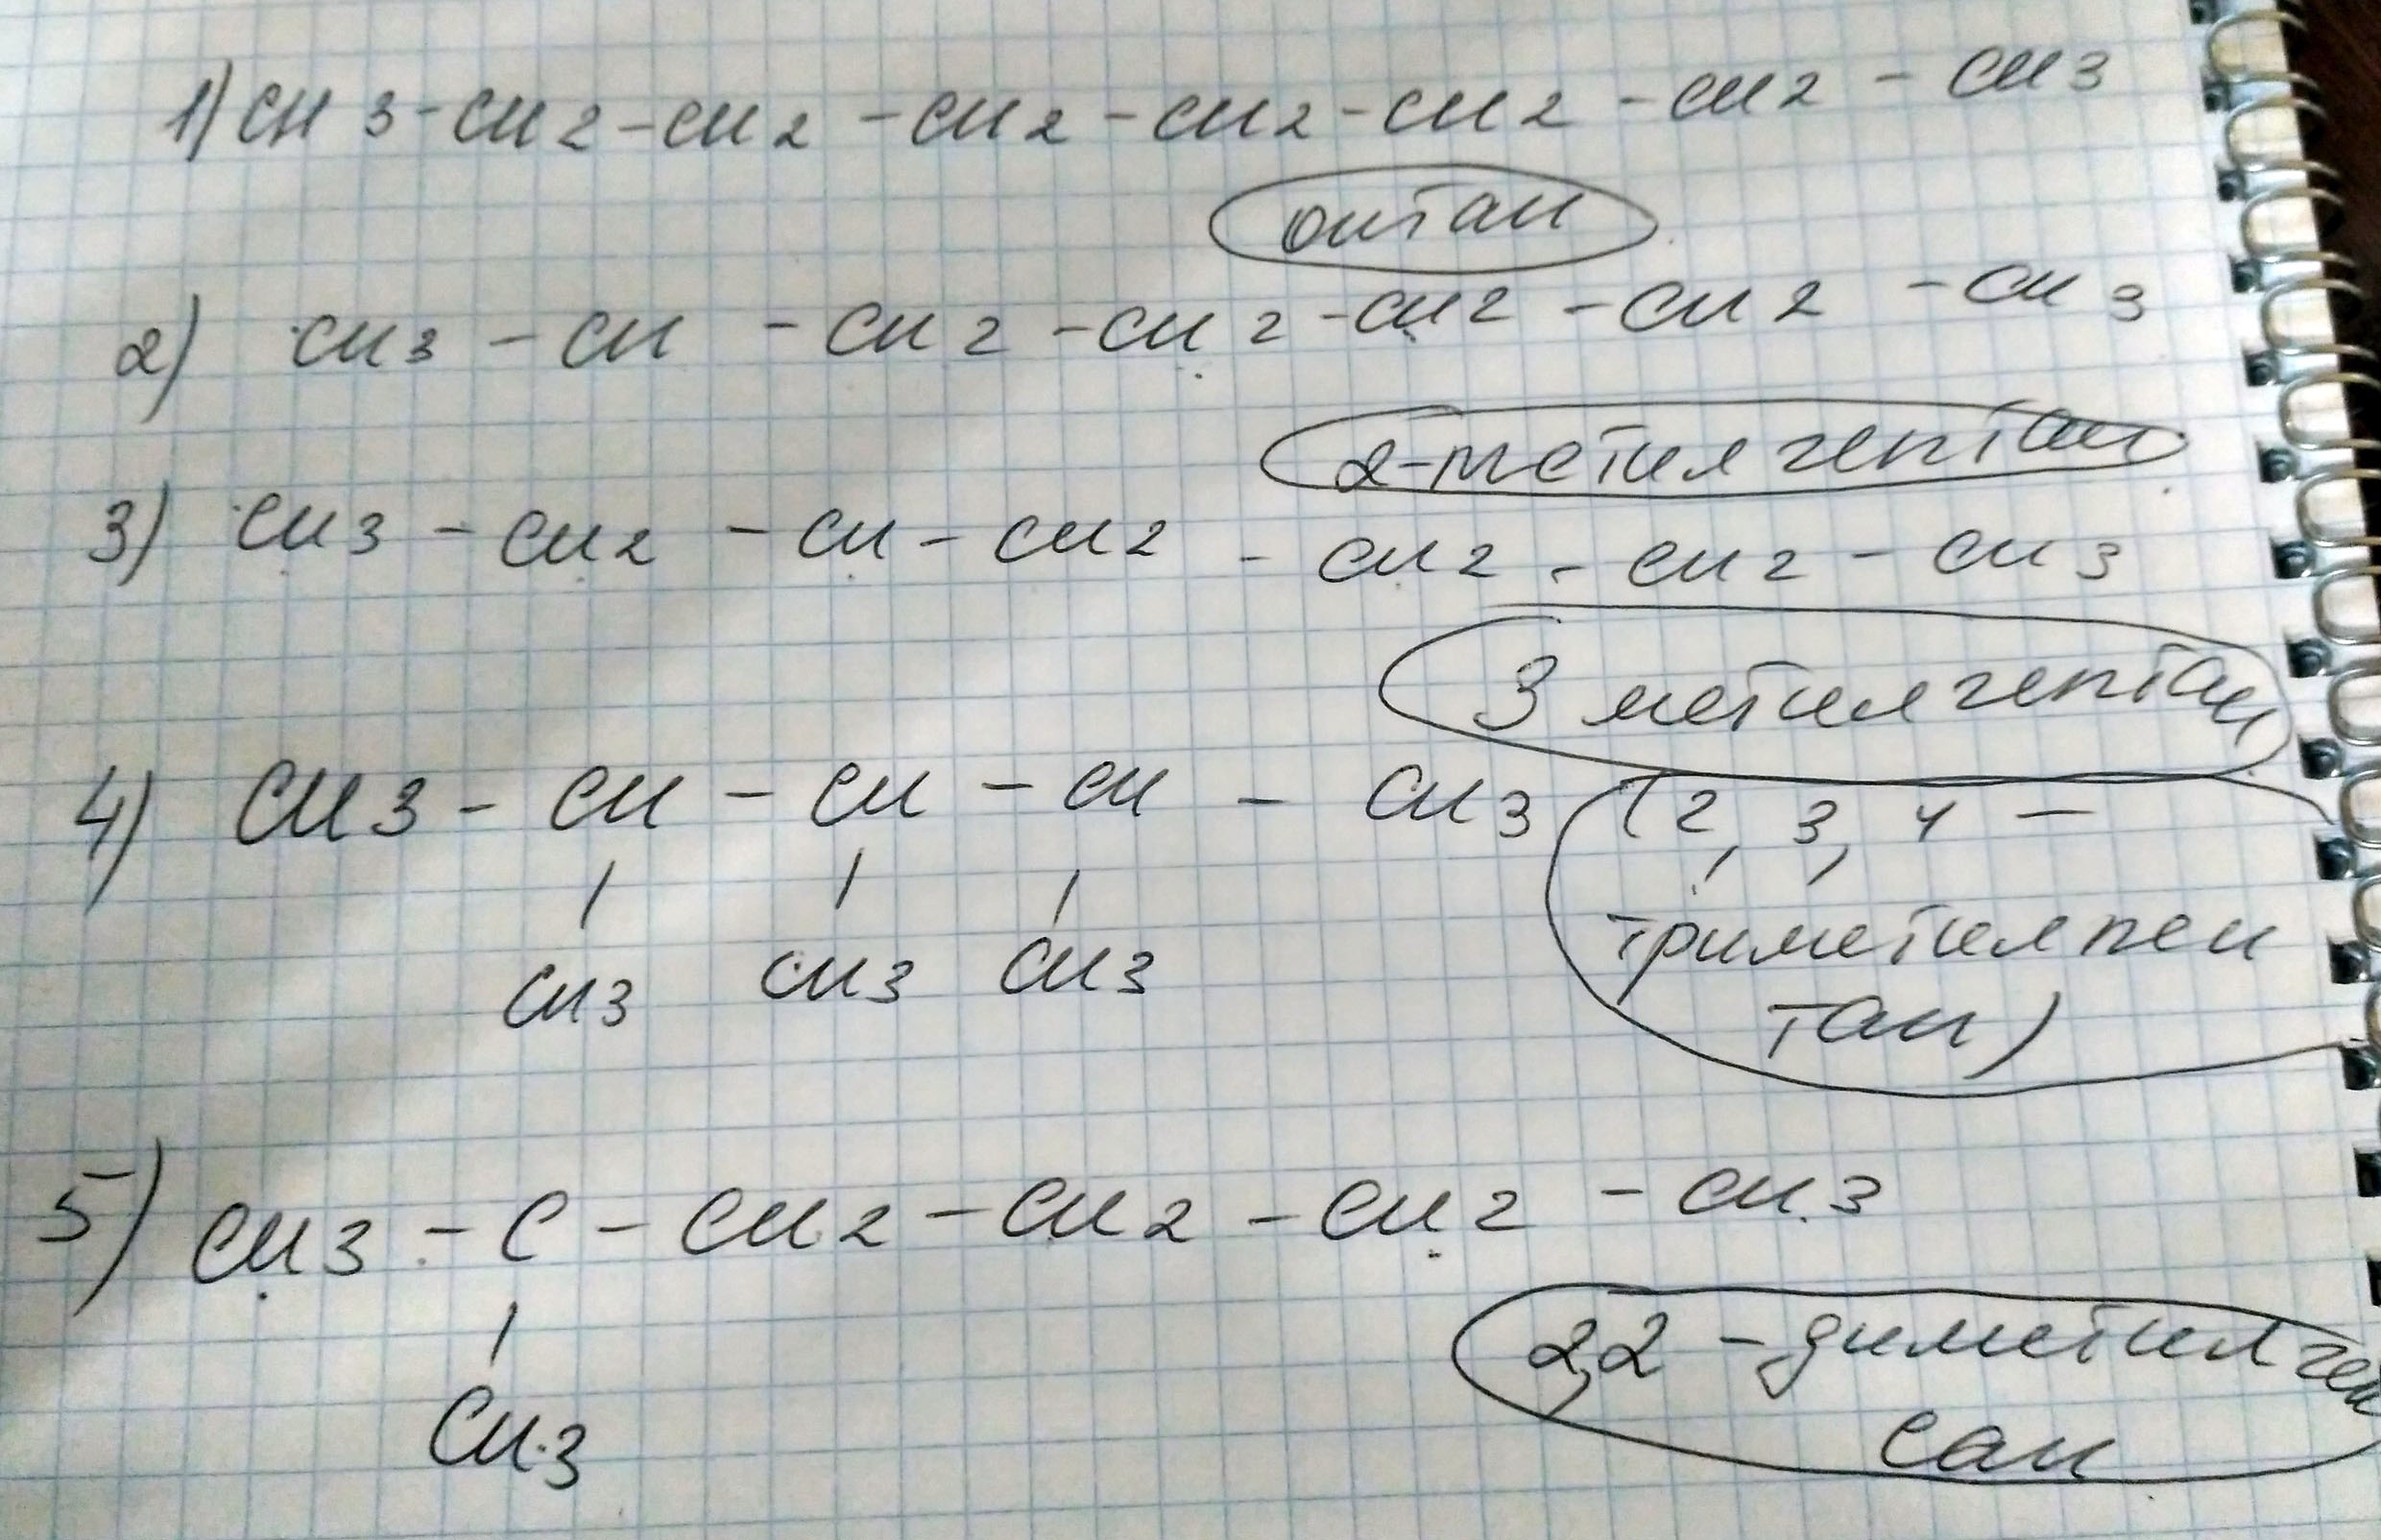 1) CH3-CH2-CH2-CH2-CH2-CH2-CH2-CH3
октан
2) CH3-CH-CH2-CH2-CH2-CH2-CH3
2-метилгептан
3) CH3-CH2-CH-CH2-CH2-CH2-CH3
3 метилгептан
4) CH3-CH-CH-CH-CH3 (2, 3, 4 -
CH3 CH3 CH3 триметилпен
тан)
5) CH3-C-CH2-CH2-CH2-CH3
CH3
2,2 - диметилгек
сан